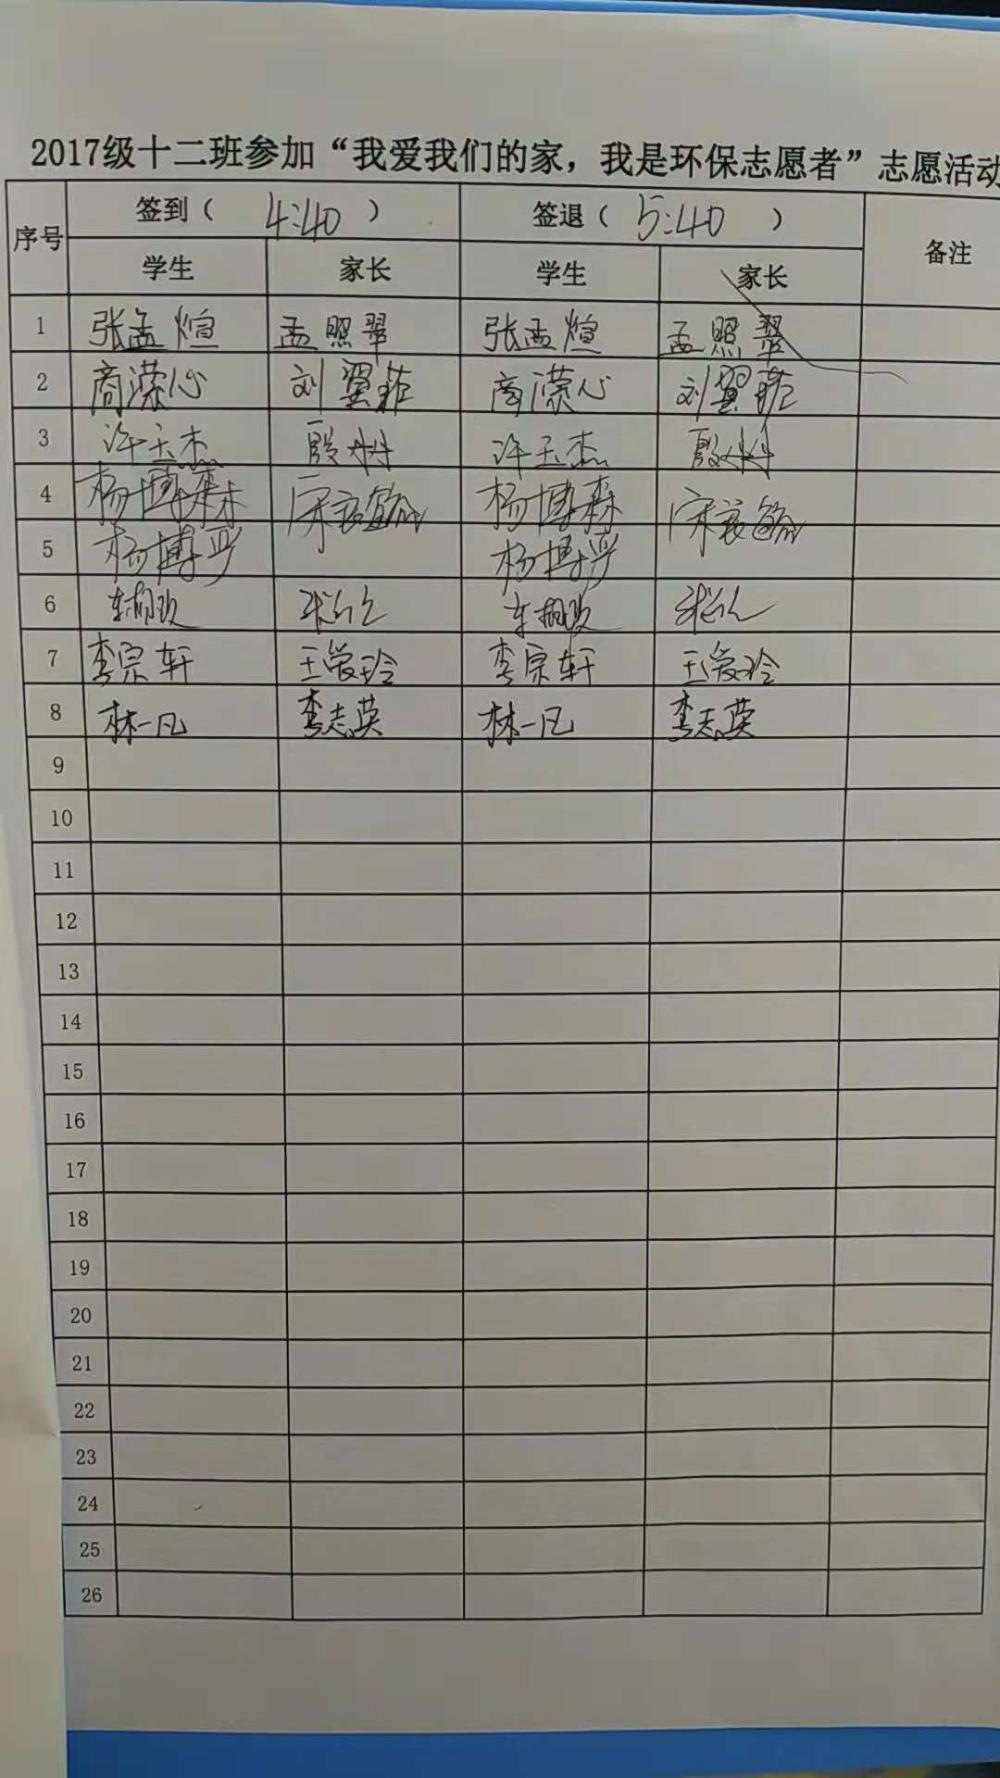 2017级十二班参加“我爱我们的家，我是环保志愿者”志愿活动
序号 签到（ 4:40 ） 签退（ 5:40 ） 备注
学生 家长 学生 家长
1 张孟煊 孟照翠 张孟煊 孟照翠
2 商濛心 刘翼菲 商濛心 刘翼菲
3 许玉杰 殷 许玉杰 殷
4 杨博森 宋 杨博森 宋
5 杨博 杨博
6
7 李宗轩 王爱玲 李宗轩 王爱玲
8 林一凡 李志英 林一凡 李志英
9
10
11
12
13
14
15
16
17
18
19
20
21
22
23
24
25
26